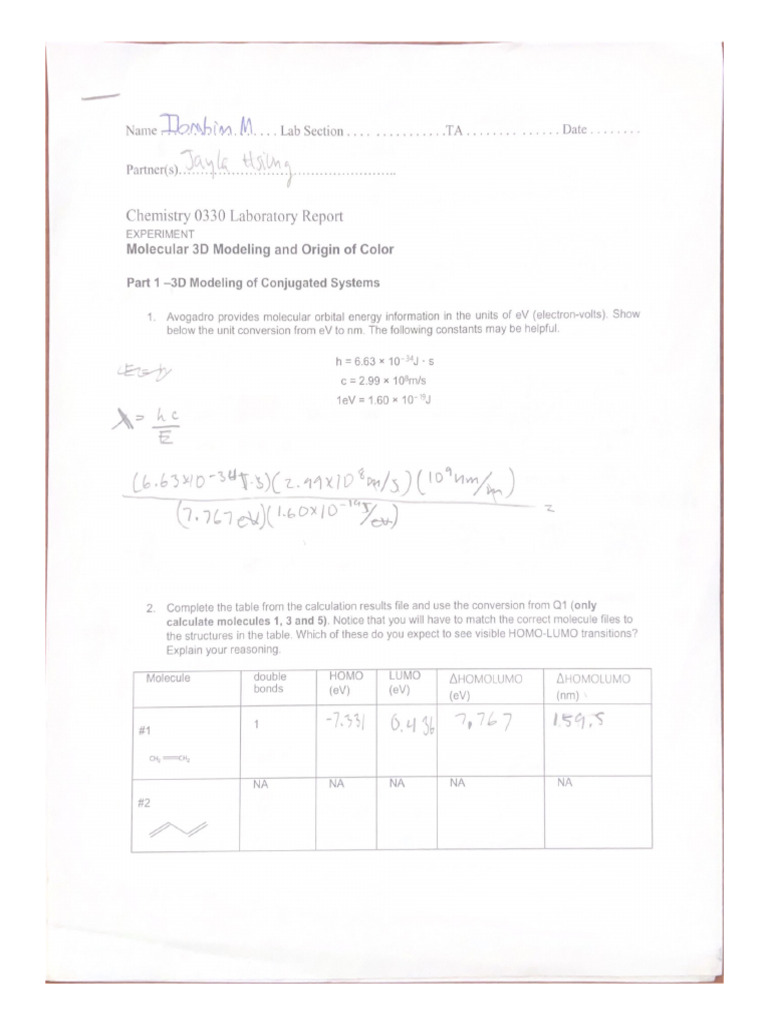 Name Ibrahim.M.... Lab Section .... ............TA ........ ...... Date ........
Partner(s)..Jayla Hsiung......................
Chemistry 0330 Laboratory Report
EXPERIMENT
Molecular 3D Modeling and Origin of Color
Part 1 –3D Modeling of Conjugated Systems
1. Avogadro provides molecular orbital energy information in the units of eV (electron-volts). Show
below the unit conversion from eV to nm. The following constants may be helpful.
h = 6.63 × 10⁻³⁴J · s
c = 2.99 × 10⁸m/s
1eV = 1.60 × 10⁻¹⁹J
λ = hc
E
(6.63×10⁻³⁴J·s)(2.99×10⁸m/s)(10⁹nm/m)
(7.767eV)(1.60×10⁻¹⁹J/eV) =
2. Complete the table from the calculation results file and use the conversion from Q1 (only
calculate molecules 1, 3 and 5). Notice that you will have to match the correct molecule files to
the structures in the table. Which of these do you expect to see visible HOMO-LUMO transitions?
Explain your reasoning.
Molecule double bonds HOMO (eV) LUMO (eV) ΔHOMOLUMO (eV) ΔHOMOLUMO (nm)
#1 1 -7.331 0.436 7.767 159.5
CH₂ CH₂
#2 NA NA NA NA NA